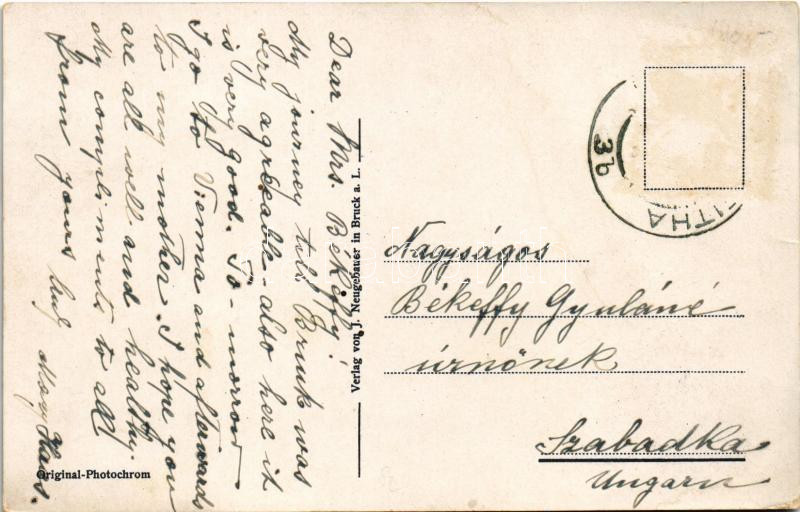 Dear Mrs. Békeffy!
My journey till Bruck was
very agreeable also here it
is very good. To-morrow
I go to Vienna and afterwards
to my mother. I hope you
are all well and healthy.
My compliments to all
from yours
Verlag von J. Neugebauer in Bruck a. L.
Original-Photochrom
3b
ITHA
Nagyságos
Békeffy Gyuláné
úrnőnek
Szabadka
Ungarn